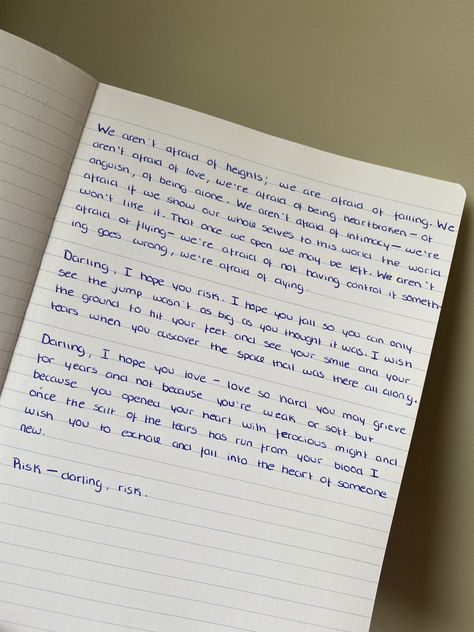 We aren't afraid of heights; we are afraid of falling. We
aren't afraid of love, we're afraid of being heartbroken - of
anguish, of being alone. We aren't afraid of intimacy - we're
afraid if we show our whole selves to this world the world
won't like it. That once we open we may be left. We aren't
afraid of flying - we're afraid of not having control if someth-
ing goes wrong, we're afraid of dying.
Darling, I hope you risk. I hope you fall so you can only
see the jump wasn't as big as you thought it was. I wish
the ground to hit your feet and see your smile and your
tears when you discover the space that was there all along.
Darling, I hope you love - love so hard you may grieve
for years and not because you're weak or soft but
because you opened your heart with ferocious might and
once the salt of the tears has run from your blood I
wish you to exhale and fall into the heart of someone
new.
Risk - darling, risk.